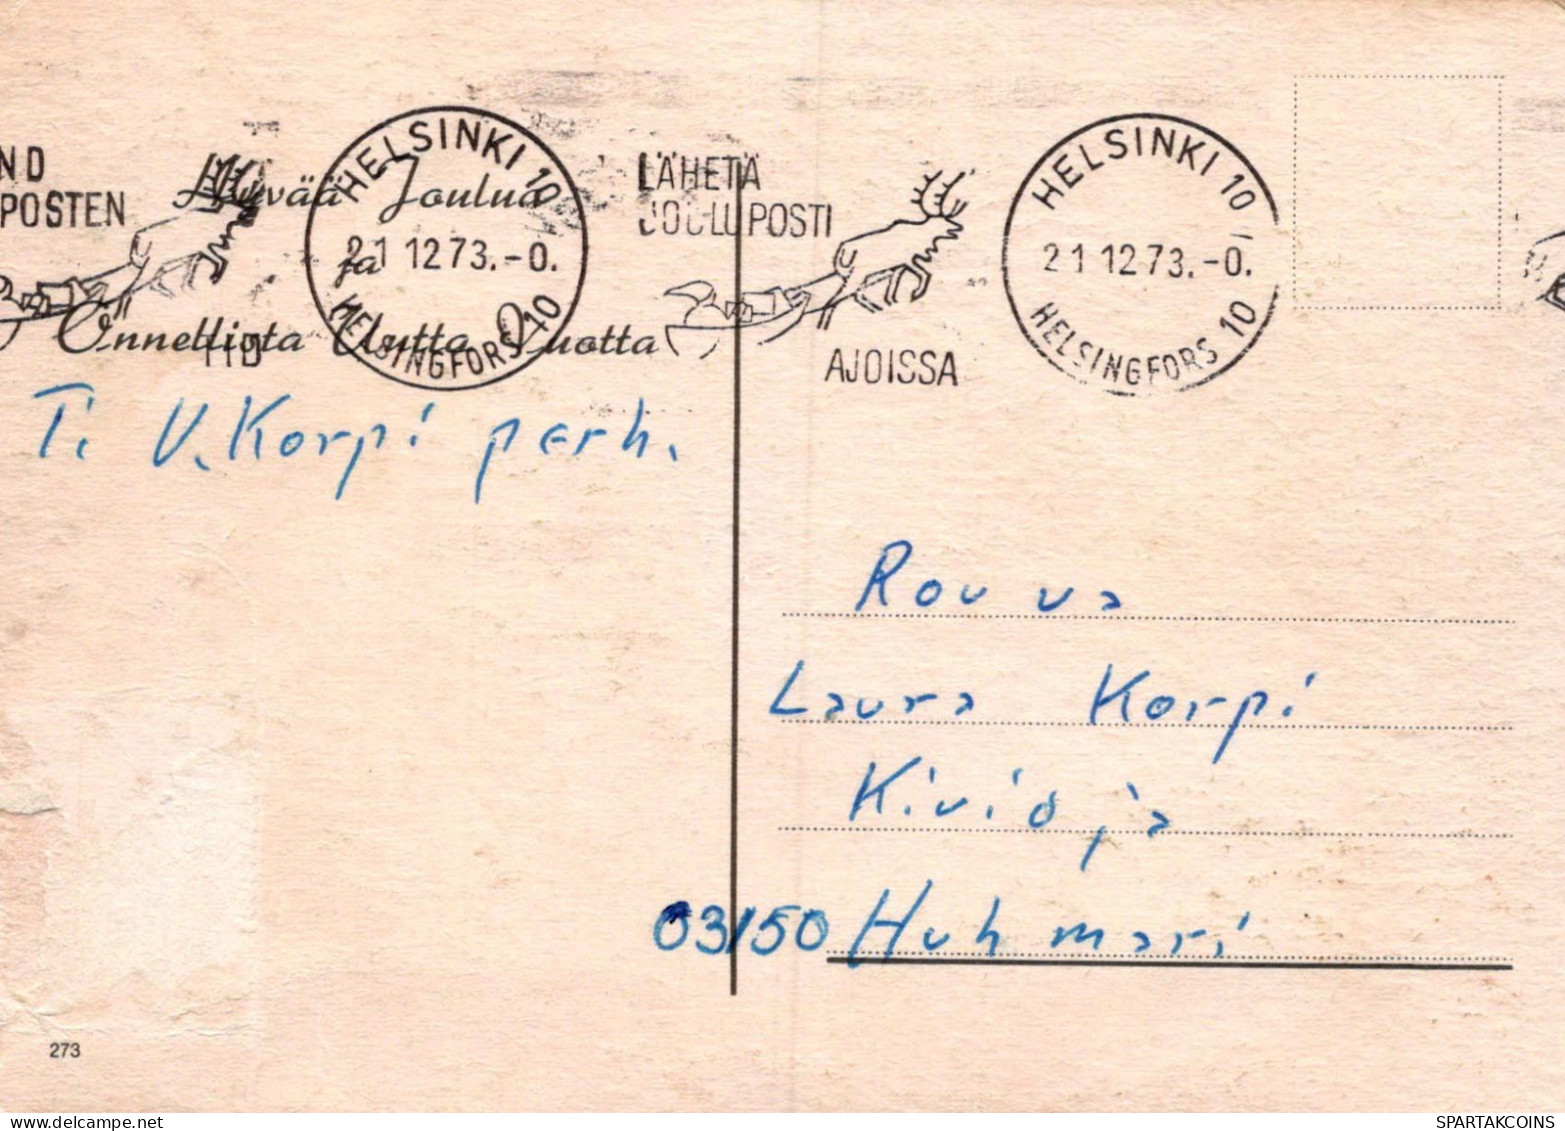 ND
POSTEN
TID
Hyvää Joulua
ja
Onnellista Uutta Vuotta
HELSINKI 10
21 12 73.-0.
HELSINGFORS 10
LÄHETÄ
JOULUPOSTI
AJOISSA
HELSINKI 10
21 12 73.-0.
HELSINGFORS 10
T. V. Korpi perh.
Rouva
Laura Korpi
Kivioja
03150 Huhmari
273
SPARTAKCOINS